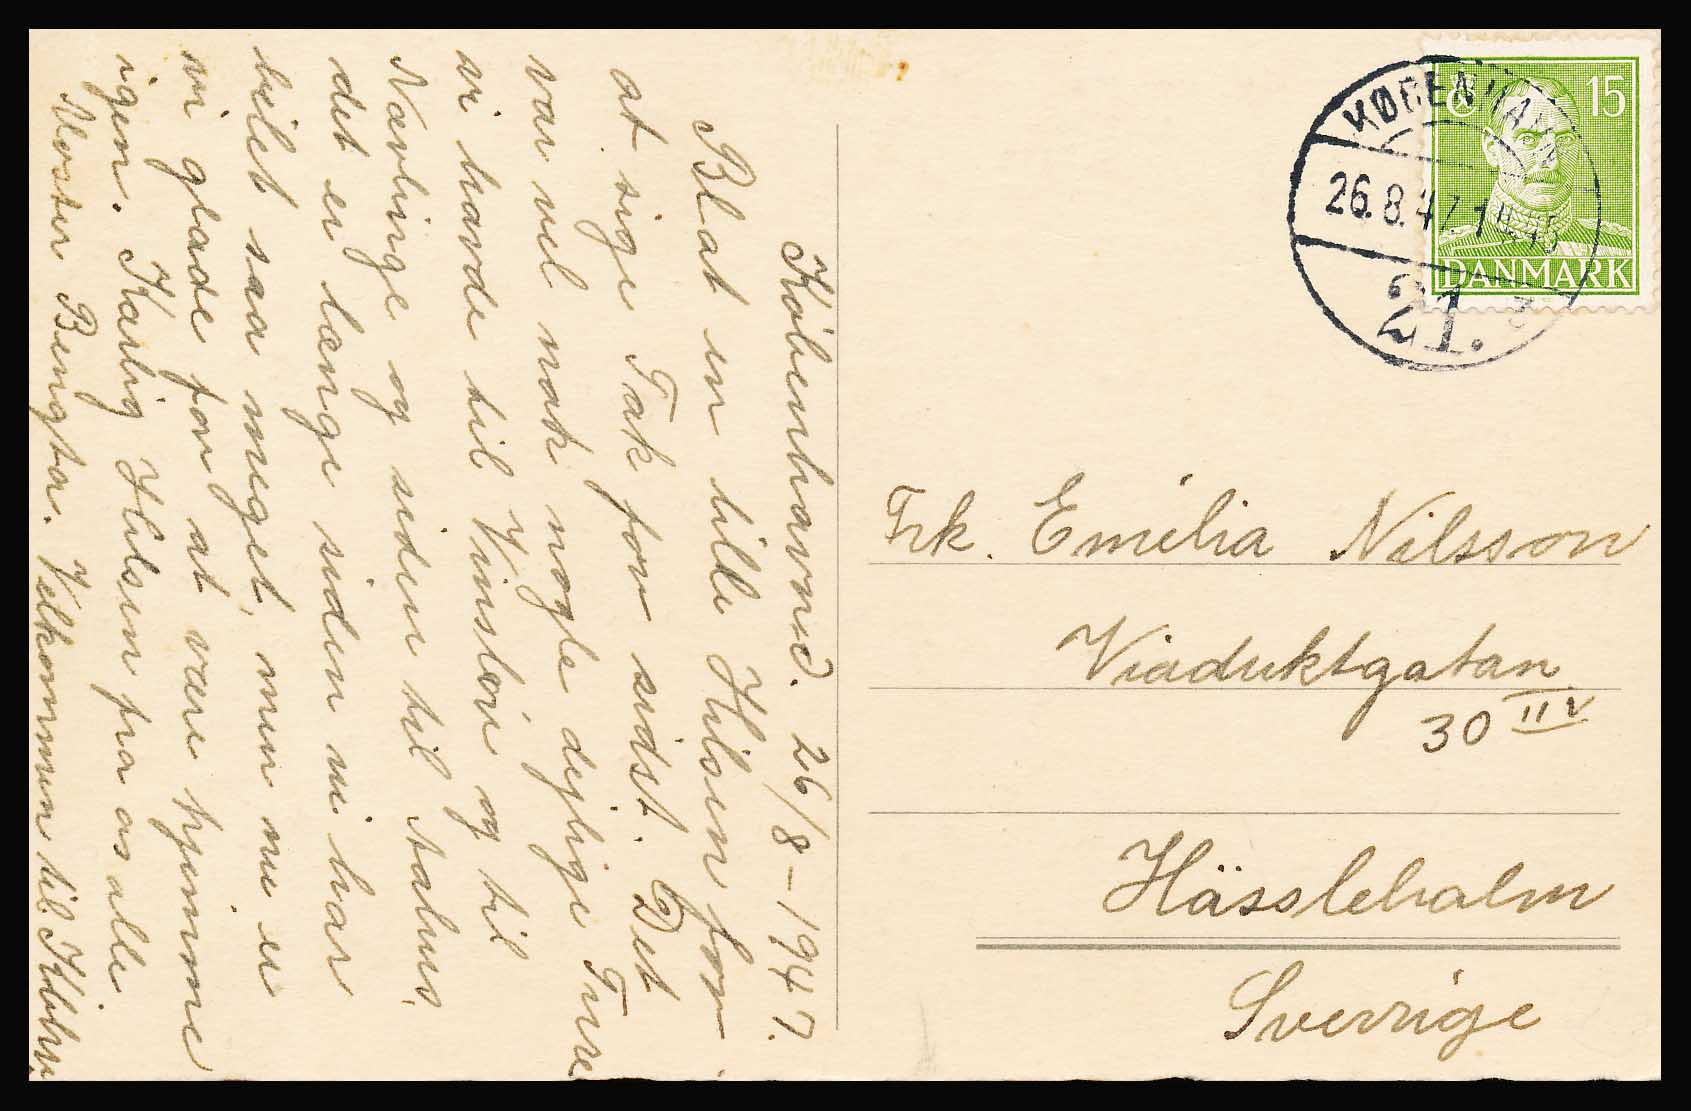 København d. 26/8-1947.
Blot en lille Hilsen for
at sige Tak for sidst. Det
var vel nok nogle dejlige Ture
vi havde til Vinsløv og til
Nævlinge og siden til Aahus,
det er længe siden vi har
bilet saa meget, men nu er
vi glade for at være hjemme
igen. Kærlig Hilsen fra os alle
Moster Bengta. Velkommen til Kbhv.
KØBENHAVN
26.8.47.
21.
15
DANMARK
Frk. Emilia Nilsson
Viaduktgatan
30 II v
Hässleholm
Sverrige